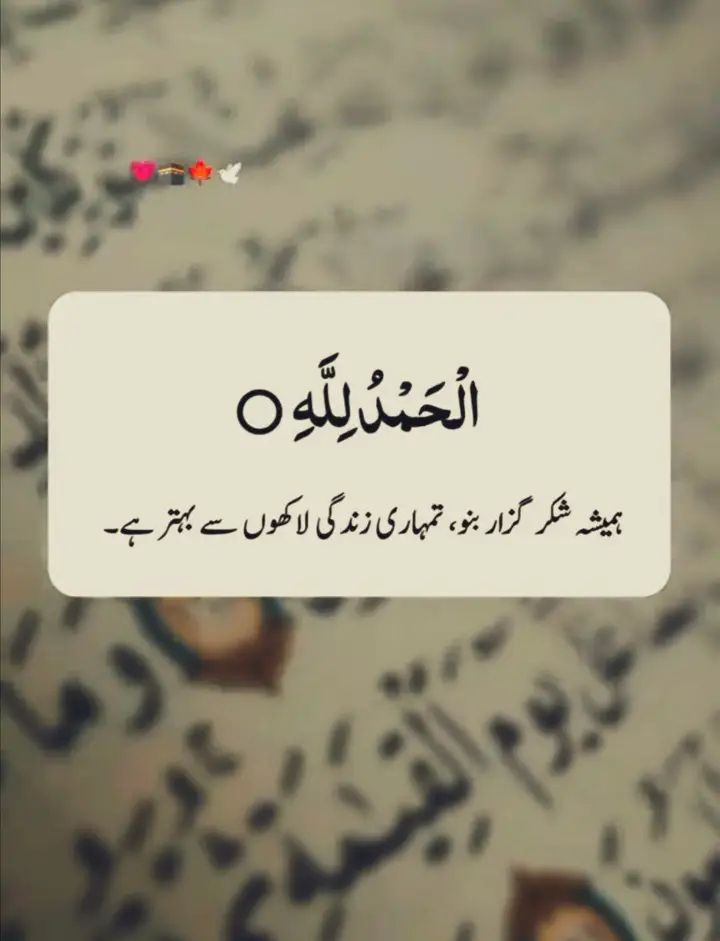 💗🕋🍁🕊️
الْحَمْدُ لِلَّهِ ○
ہمیشہ شکر گزار بنو، تمہاری زندگی لاکھوں سے بہتر ہے۔
وَمَا
يَوْمَ الْقِيٰمَةِ